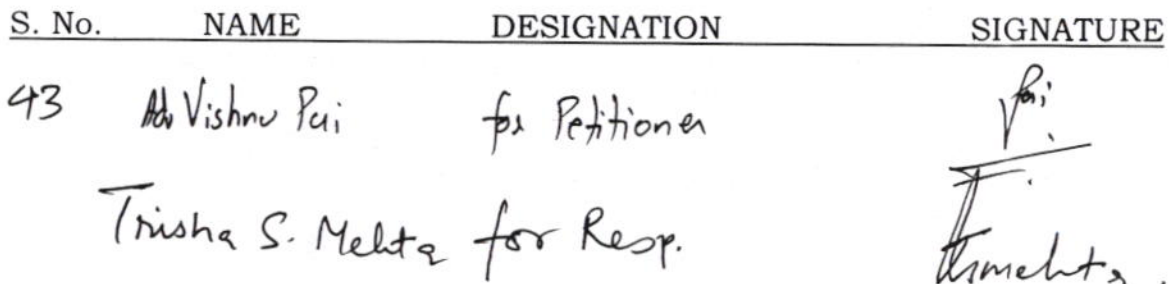 S. No. NAME DESIGNATION SIGNATURE
43 Adv Vishnu Pai for Petitioner Pai
Trisha S. Mehta for Resp. Tsmehta.